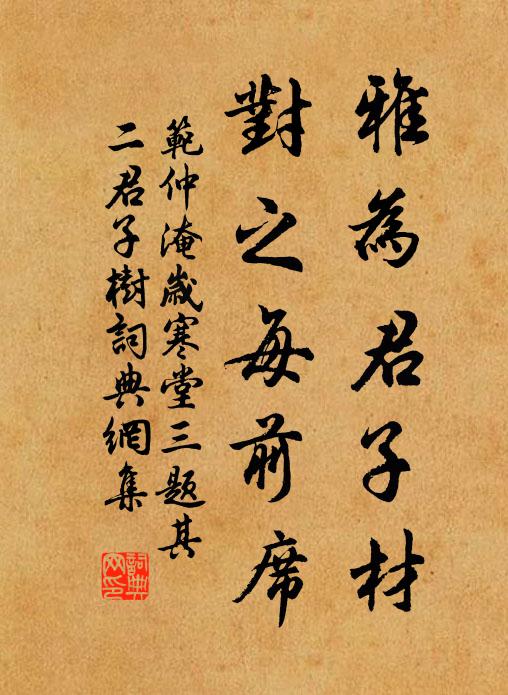 雅為君子材
對之每前席
範仲淹歲寒堂三題其
二君子樹詞典網集
詞典網印